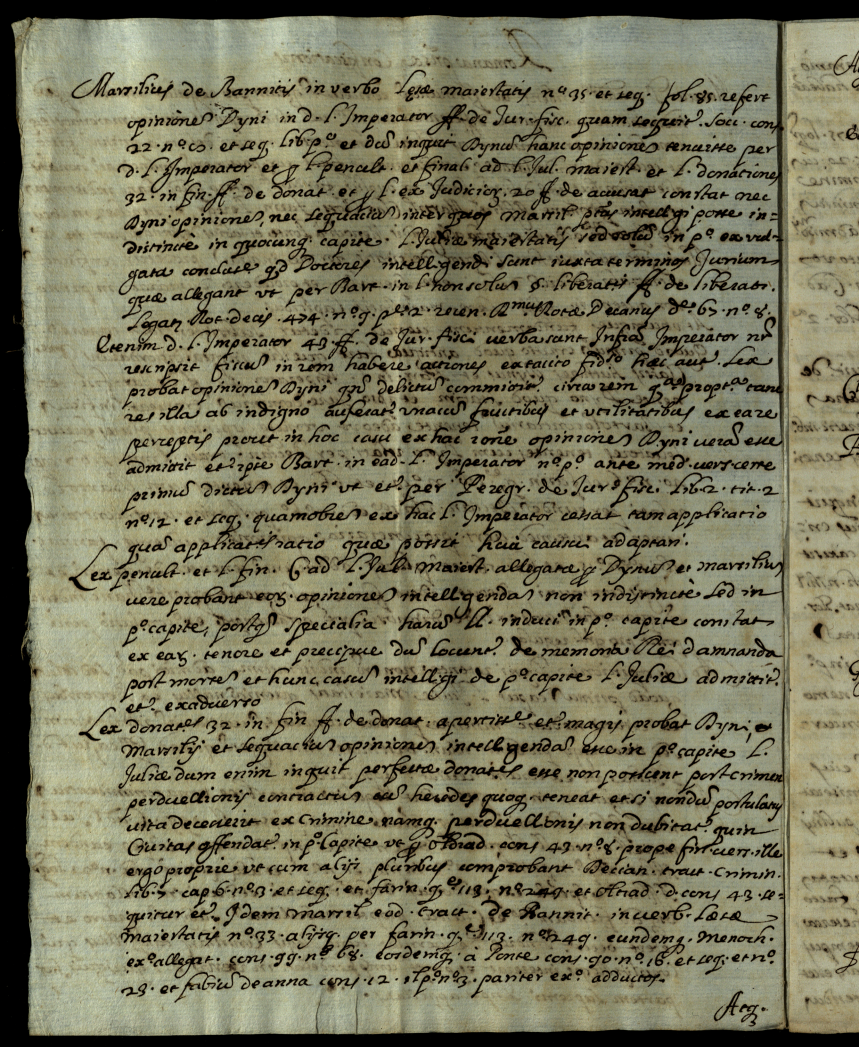 Marsilius de Bannitis in verbo Lęsæ maiestatis nº 35. et seq. fol. 85. refert
opinione Dyni in d. l. Imperator ff. de Jur. fisc. quam sequit. Soci. cons.
22. nº et seq. lib. pº et dũ inquit Dynus hanc opinione tenuisse per
d. l. Imperator et p l. penult. et final. ad l. Jul. maiest. et l. donationes
32. in fin. ff. de donat. et p l. ex Judicioȝ 20 ff. de accusat. constat nec
Dyni opinione, nec sequaciũ inter quos Marsil. intelligi posse in=
distincte in quocunq. capite l. Juliæ maiestatis sed solũ in pº ex vul=
gata conclus. qd Doctores intelligendi sunt iuxta terminos Jurium
quæ allegant vt per Bart. in l. non solũ §. liberatis ff. de liberat.
Legat. Rot. decis. 474. nº 9. p. 2. recen. Rotæ Decanus dº 67. nº 8.
Etenim d. l. Imperator 49 ff. de Jur. fisci verba sunt Infra Imperator nr
rescripsit fiscũ in rem habere actiones ex tacito hæc aut. Lex
probat opinione Dyni qñ delictũ committit. circa rem propt. tunc
res illa ab indigno auferat. vnacũ fructibus et vtilitatibus ex ea re
perceptis prout in hoc casu ex hac rone opinione Dyni verã esse
admittit et ipse Bart. in d. l. Imperator nº pº ante med. vers. certe
primũ dictũ Dyni vt et per Peregr. de Jur. fisc. lib. 2. tit. 2
nº 12. et seq. quamobrem ex hac l. Imperator cessat tam applicatio
quã applicatis ratio quæ possit huic causæ adaptari.
Lex penult. et l. fin. C. ad l. Jul. maiest. allegatæ p Dynũ et Marsiliũ
vere probant eoȝ opinione intelligendã non indistincte sed in
pº capite, postq̃ specialia harũ ll. induci in pº capite constat
ex eaȝ tenore et precipue dũ locunt. de memoria Rei damnanda
post mortem et hunc casũ intelligi de pº capite l. Juliæ admittit.
et. ex aduerso
Lex donates 32. in fin ff. de donat. apertisse et. magis probat Dyni, et
Marsilij et sequaciũ opinione intelligendã esse in pº capite l.
Juliæ dum enim inquit perfectæ donates esse non possunt post crimen
perduellionis contractũ cũ heredes quoq. teneat et si nondũ postulatus
vita decesserit ex Crimine namq. perduellionis non dubitat. quin
Ciuitas offendat. in pº Capite vt p Oldrad. cons 43. nº 8. prope fin. vers. ille
ergo proprie vt cum alijs pluribus comprobant Decian. tract. Crimin.
lib. 7. cap. 6. nº 3. et seq. et farin. q. 113. nº 249. et Oldrad. d. cons 43. se=
quitur et. Idem Marsil. eod. tract. de Bannit. in verb. Læsæ
maiestatis nº 33. alijsq. per farin. q. 113. nº 249. eundemq. Menoch.
ex allegat. cons. 99. nº 68. eosdemq. a Ponte cons. 90. nº 16. et seq. et nº
23. et fabiũ de anna cons. 12. nº 3. pariter exº adductos.
Atq.